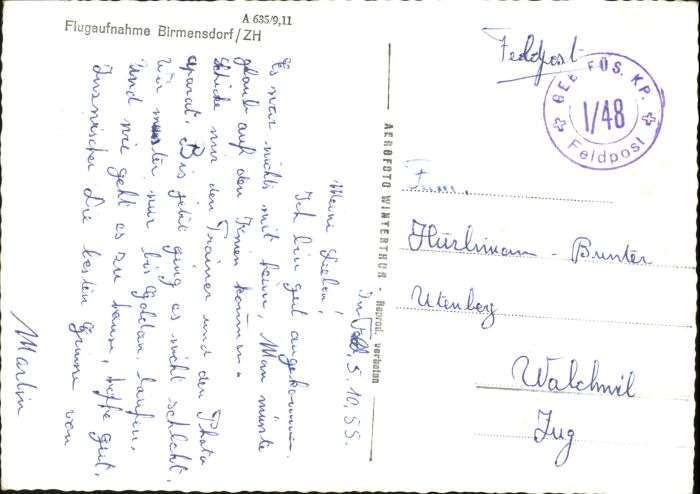 A 635/9,11
Flugaufnahme Birmensdorf/ZH
Im Feld, 5.10.55.
Meine Lieben!
Ich bin gut angekommen.
Es war nichts mit heim, Man müsste
glaub auf den Knien kommen.
Schicke mir den Trainer und den Photo
aparat. Bis jetzt ging es nicht schlecht.
Wir mussten nur bis Goldau laufen,
Und wie geht es zu hause, hoffe gut.
Inzwischen die besten Grüsse von
Martin
AEROFOTO WINTERTHUR - Reprod. verboten
Feldpost
GEB. FÜS. KP.
I/48
Feldpost
Fam.
Hürlimann - Bunter
Utenberg
Walchwil
Zug